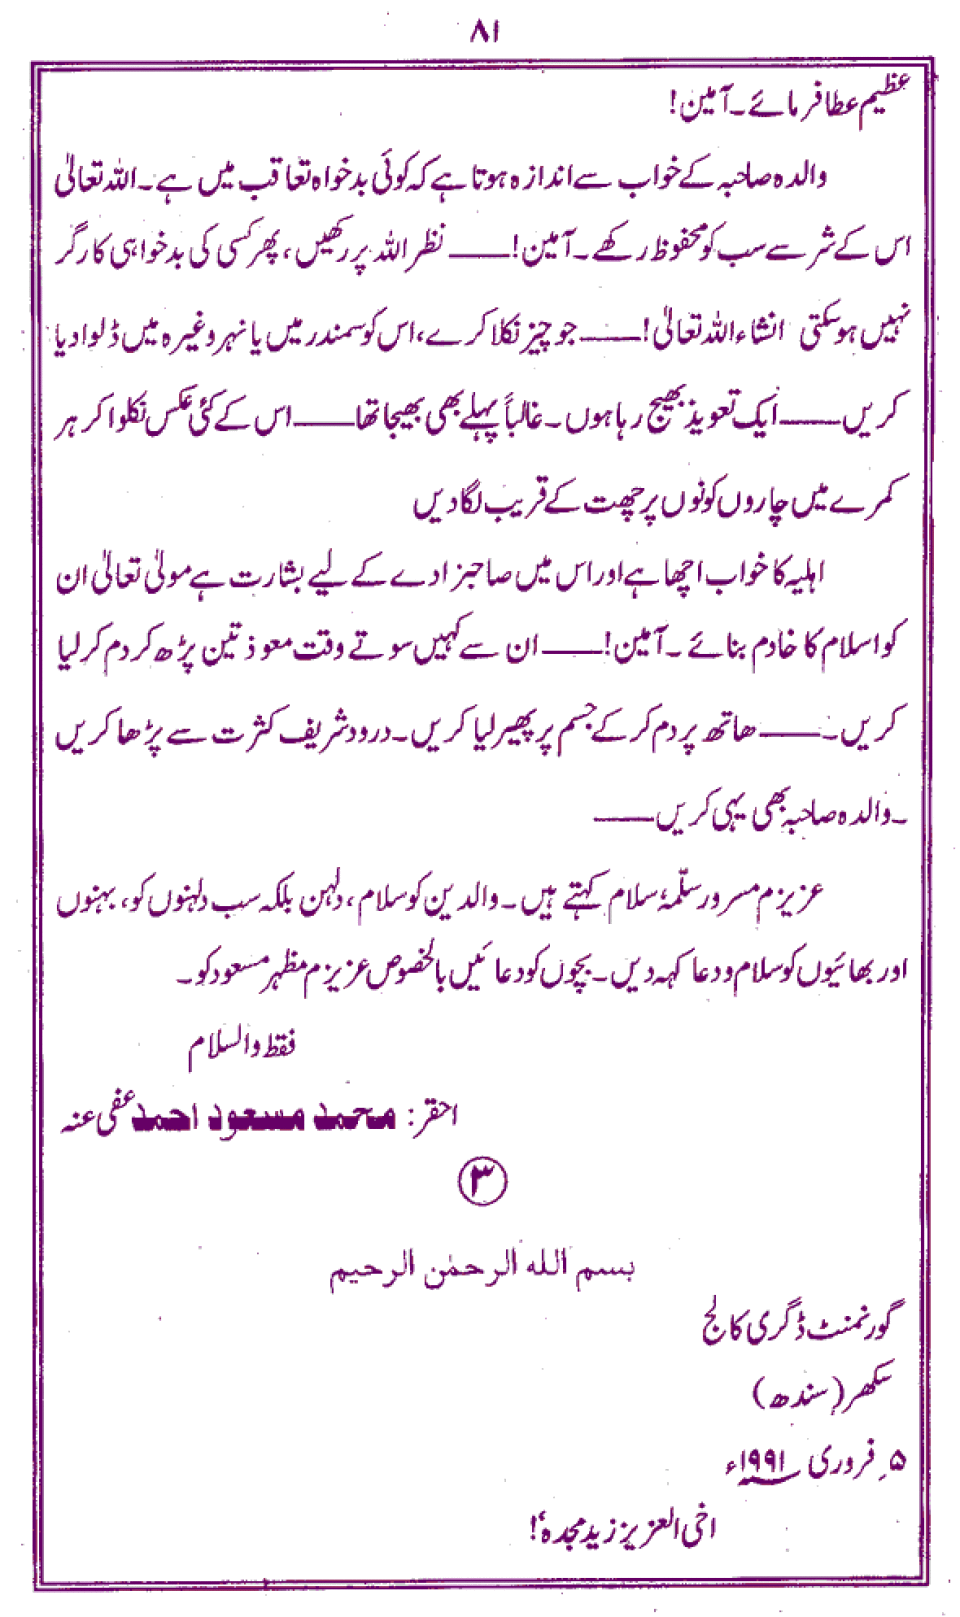 ۸۱
عظیم عطا فرمائے۔ آمین!
والدہ صاحبہ کے خواب سے اندازہ ہوتا ہے کہ کوئی بدخواہ تعاقب میں ہے۔ اللہ تعالیٰ
اس کے شر سے سب کو محفوظ رکھے۔ آمین!——— نظر اللہ پر رکھیں، پھر کسی کی بدخواہی کارگر
نہیں ہوسکتی انشاء اللہ تعالیٰ!——— جو چیز نکلا کرے، اس کو سمندر میں یا نہر وغیرہ میں ڈلوا دیا
کریں——— ایک تعویذ بھیج رہا ہوں۔ غالباً پہلے بھی بھیجا تھا——— اس کے کئی عکس نکلوا کر ہر
کمرے میں چاروں کونوں پر چھت کے قریب لگادیں
اہلیہ کا خواب اچھا ہے اور اس میں صاحبزادے کے لیے بشارت ہے مولیٰ تعالیٰ ان
کو اسلام کا خادم بنائے۔ آمین!——— ان سے کہیں سوتے وقت معوذتین پڑھ کر دم کرلیا
کریں۔——— ھاتھ پر دم کرکے جسم پر پھیر لیا کریں۔ درود شریف کثرت سے پڑھا کریں
۔والدہ صاحبہ بھی یہی کریں———
عزیزم مسرور سلّمہٗ سلام کہتے ہیں۔ والدین کو سلام، دلہن بلکہ سب دلہنوں کو، بہنوں
اور بھائیوں کو سلام و دعا کہہ دیں۔ بچوں کو دعائیں بالخصوص عزیزم مظہر مسعود کو۔
فقط والسلام
احقر: محمد مسعود احمد عفی عنہ
۳
بسم الله الرحمٰن الرحيم
گورنمنٹ ڈگری کالج
سکھر (سندھ)
۵؍ فروری ۱۹۹۱ء
اخی العزیز زید مجدہٗ!